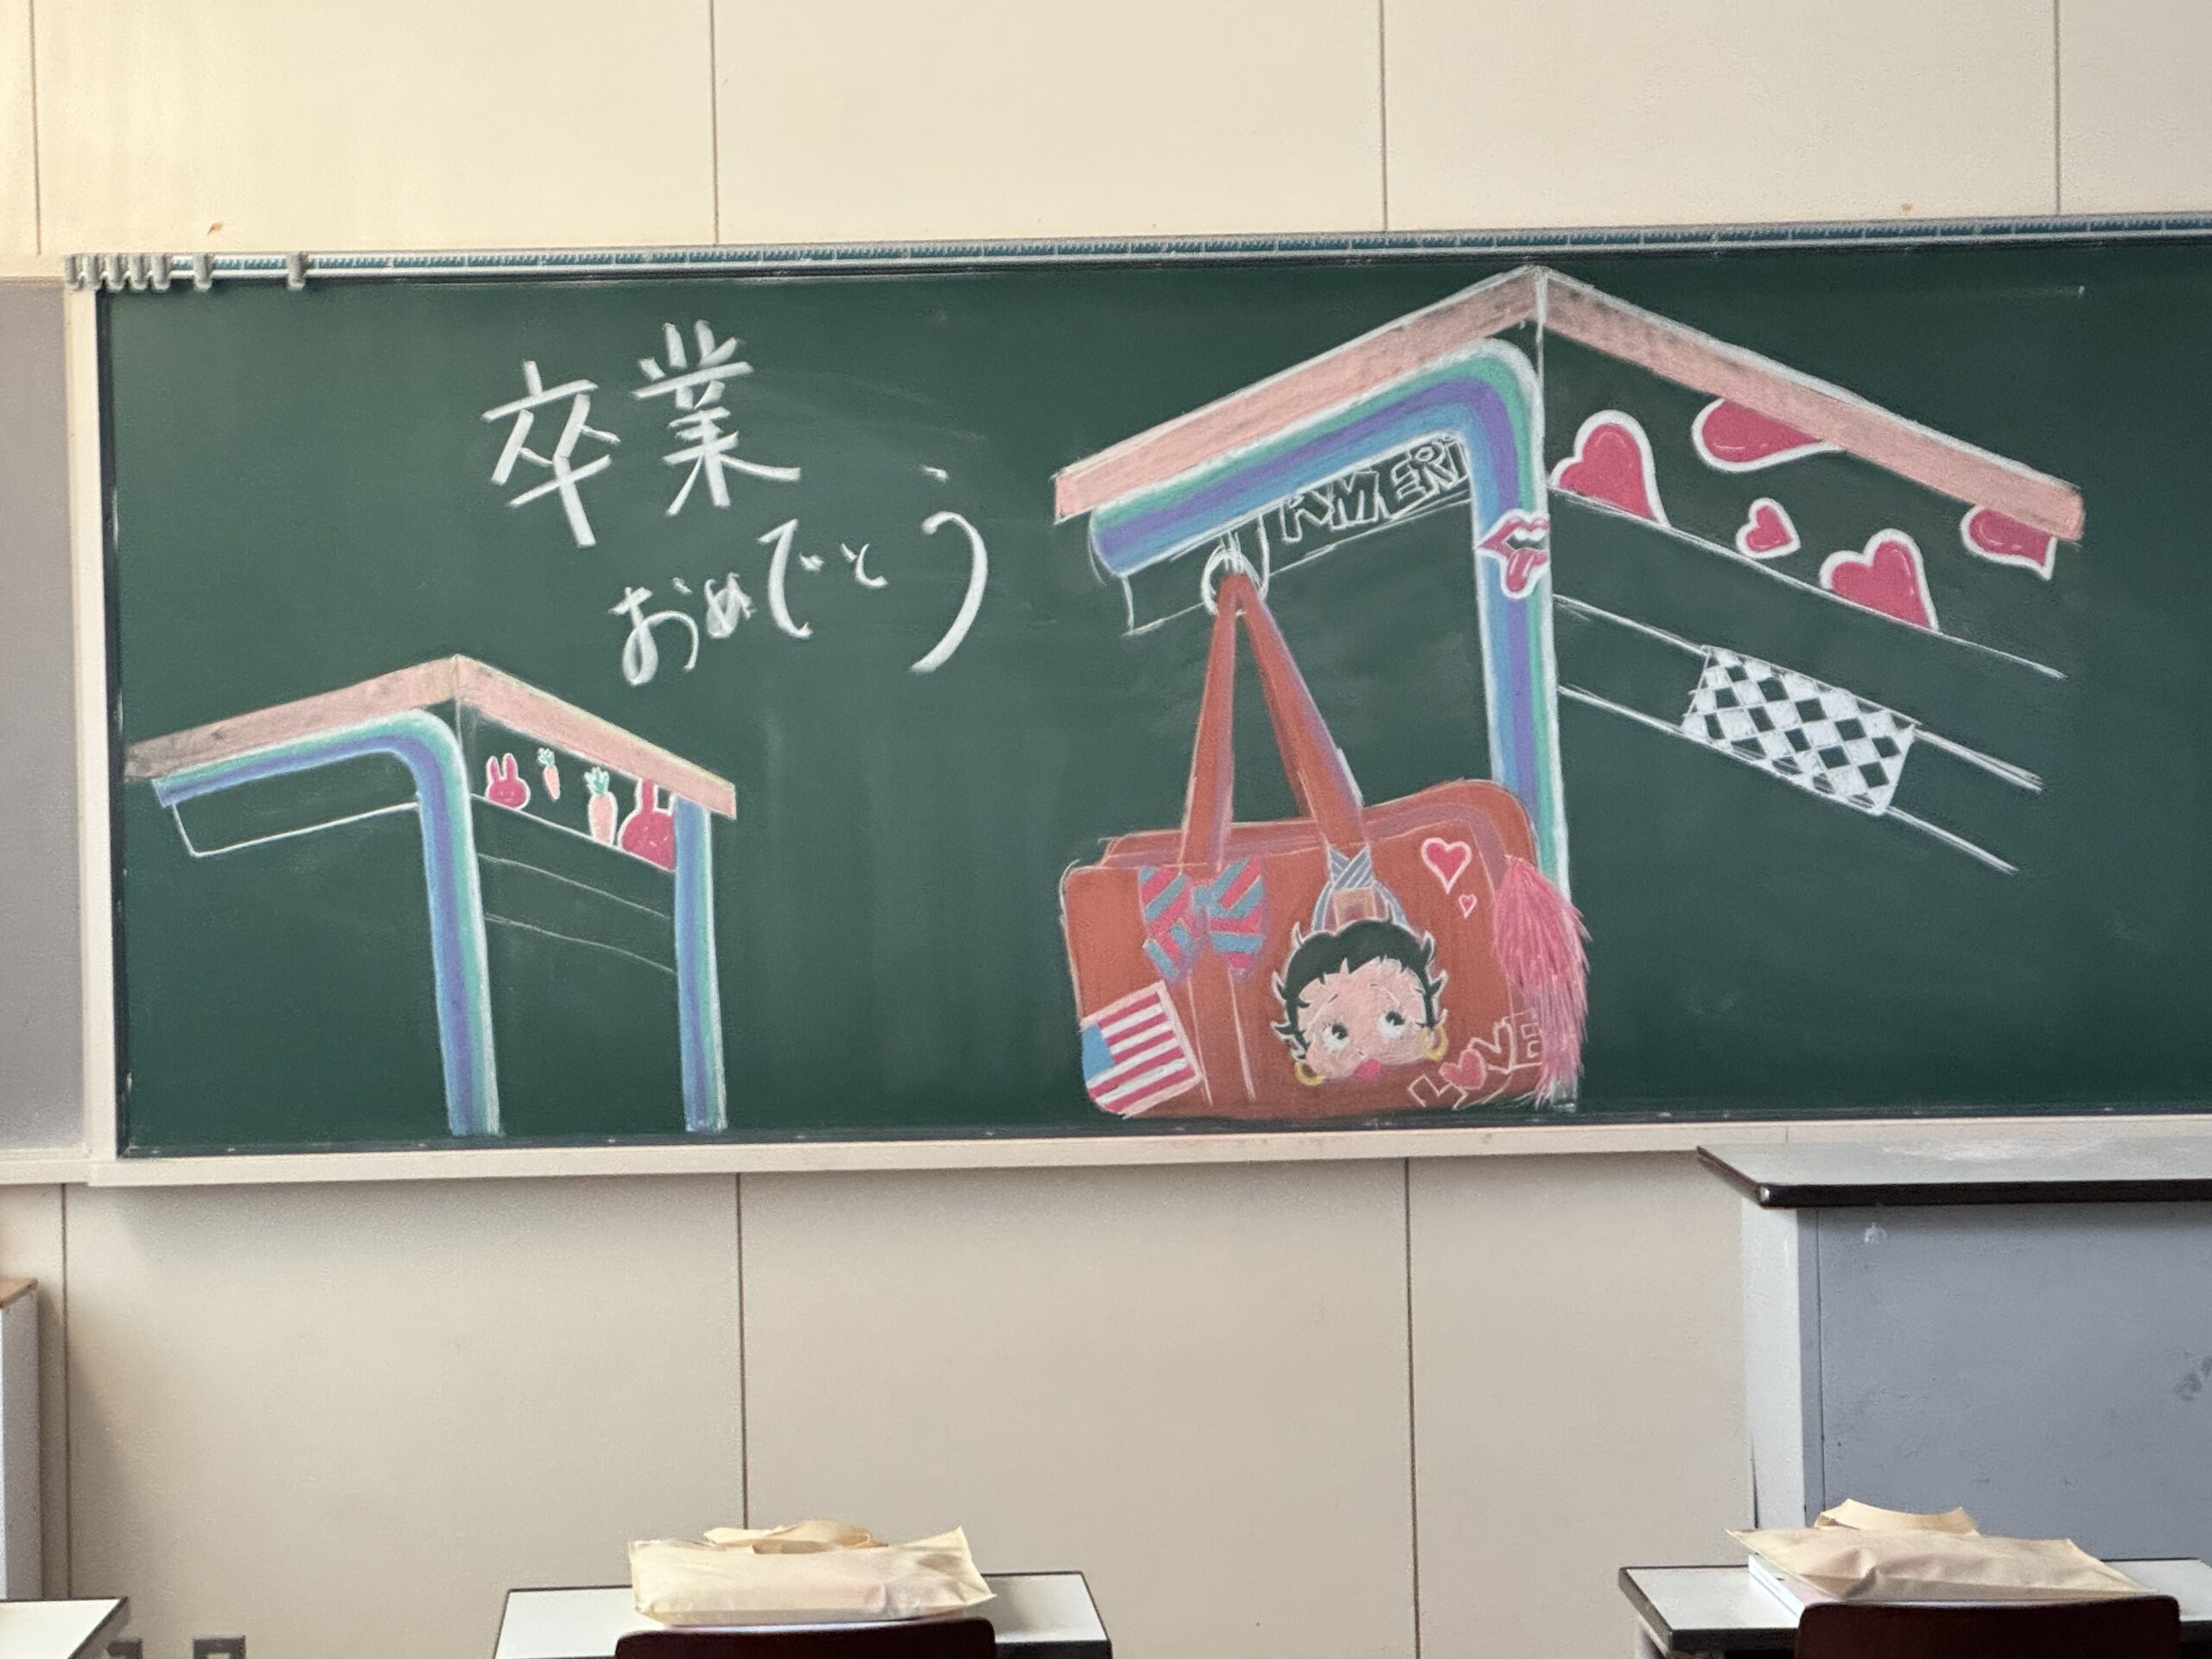 卒業
おめでとう
AMERI
LOVE